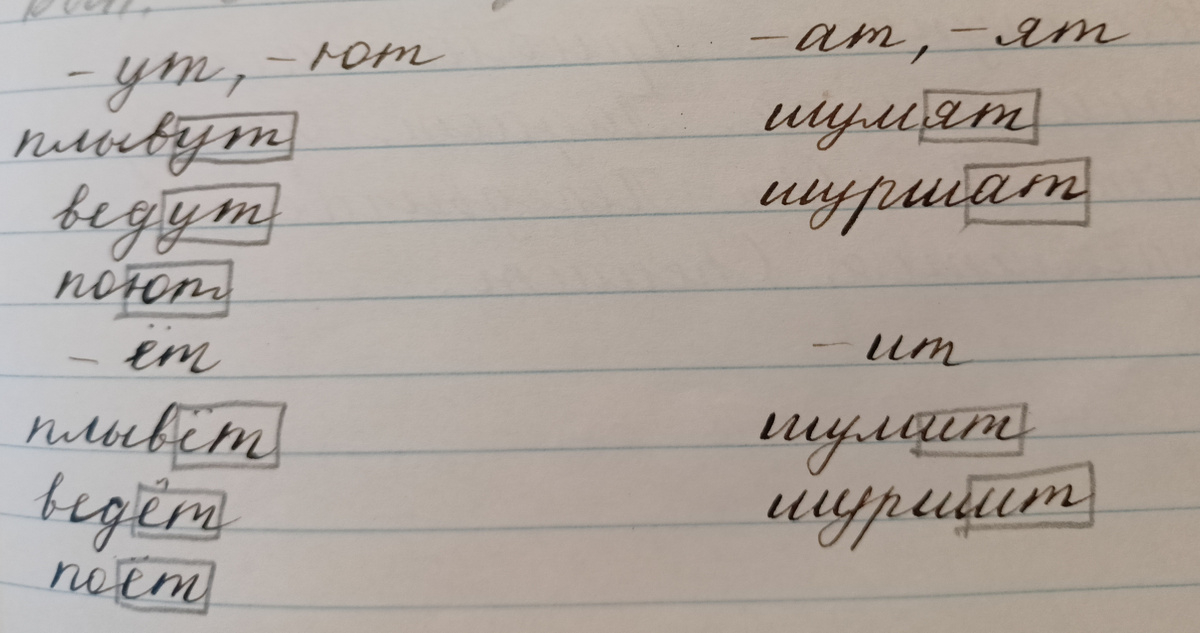 - ут, - ют
плывут
ведут
поют
- ёт
плывёт
ведёт
поёт
- ат, - ят
шумят
шуршат
- ит
шумит
шуршит